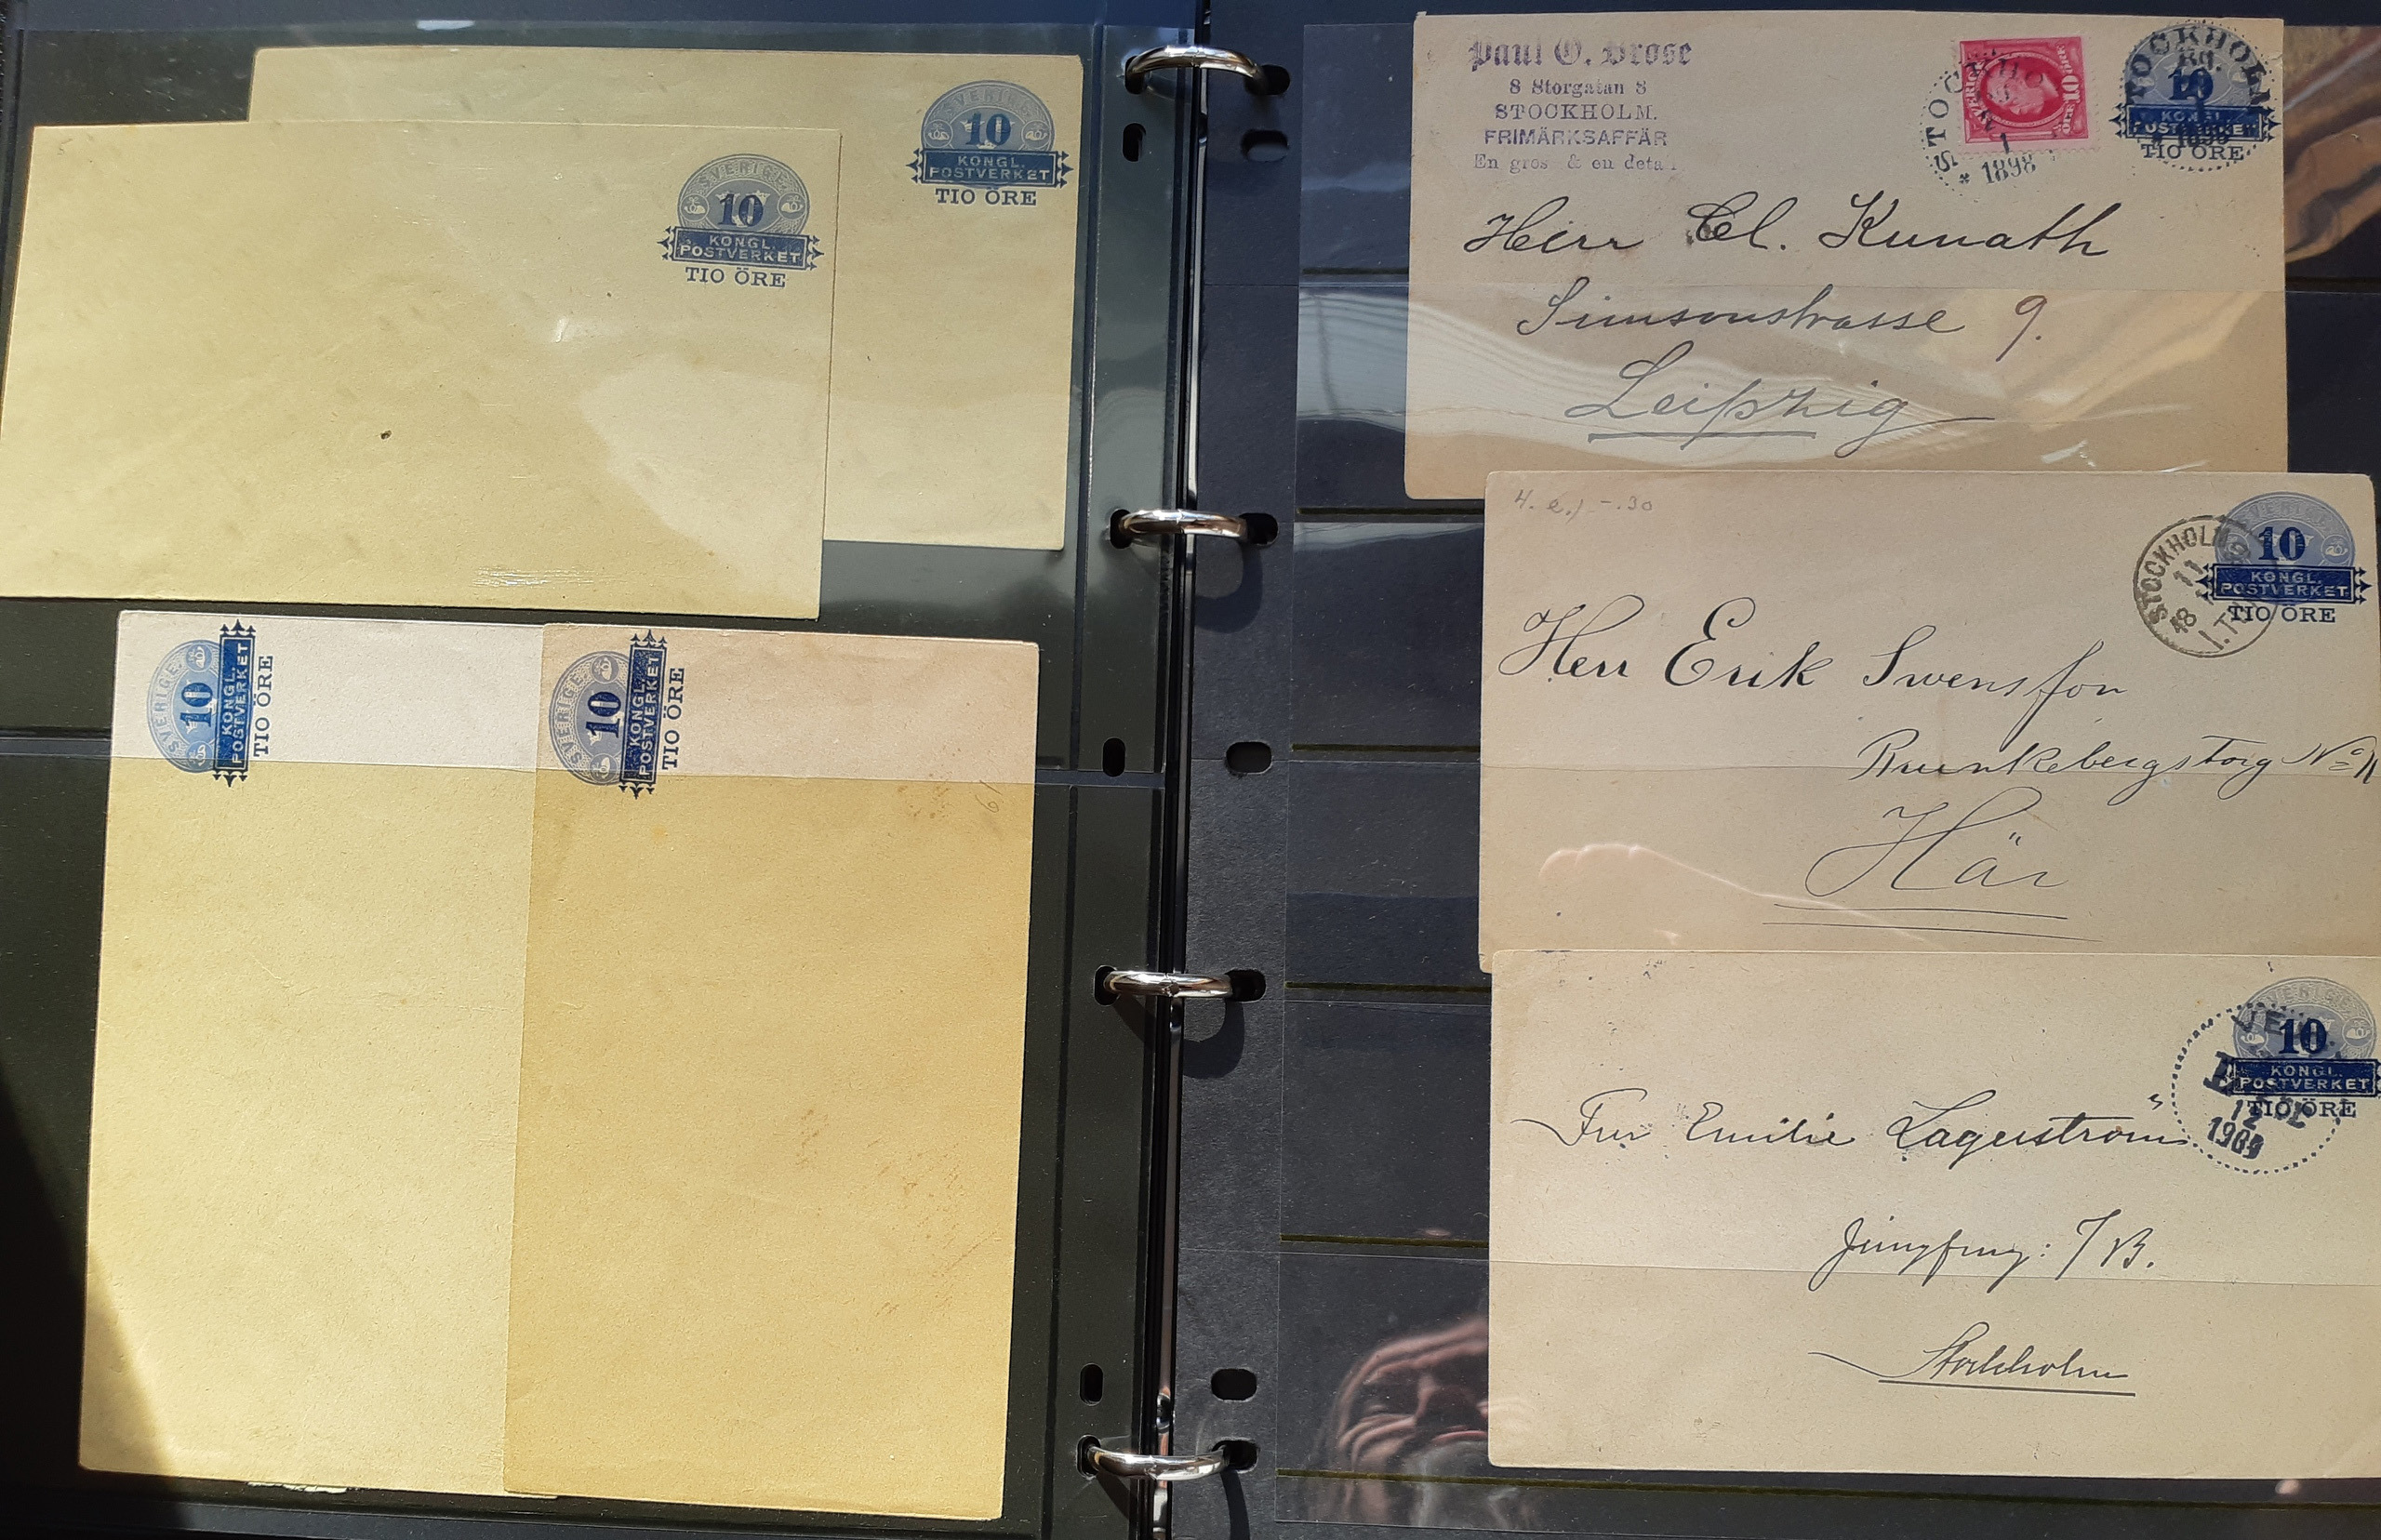 SVERIGE.
10
KONGL.
POSTVERKET
TIO ÖRE
SVERIGE.
10
KONGL.
POSTVERKET
TIO ÖRE
SVERIGE.
10
KONGL.
POSTVERKET
TIO ÖRE
SVERIGE.
10
KONGL.
POSTVERKET
TIO ÖRE
19
Paul O. Brose
8 Storgatan 8
STOCKHOLM.
FRIMÄRKSAFFÄR
En gros & en detal
SVERIGE
10 ÖRE
STOCKHO
1
1898
STOCKHOLM
10
KONGL.
POSTVERKET
TIO ÖRE
Herr Cl. Kunath
Simsonstrasse 9.
Leipzig
4. e.) -.30
STOCKHOLM
11
18
1.T
SVERIGE
10
KONGL.
POSTVERKET
TIO ÖRE
Herr Erik Swensson
Brunkebergstorg No
Här
SVERIGE.
10
KONGL.
POSTVERKET
TIO ÖRE
12
Emilie Lagerström
Jungfrug: 7 B.
Stockholm